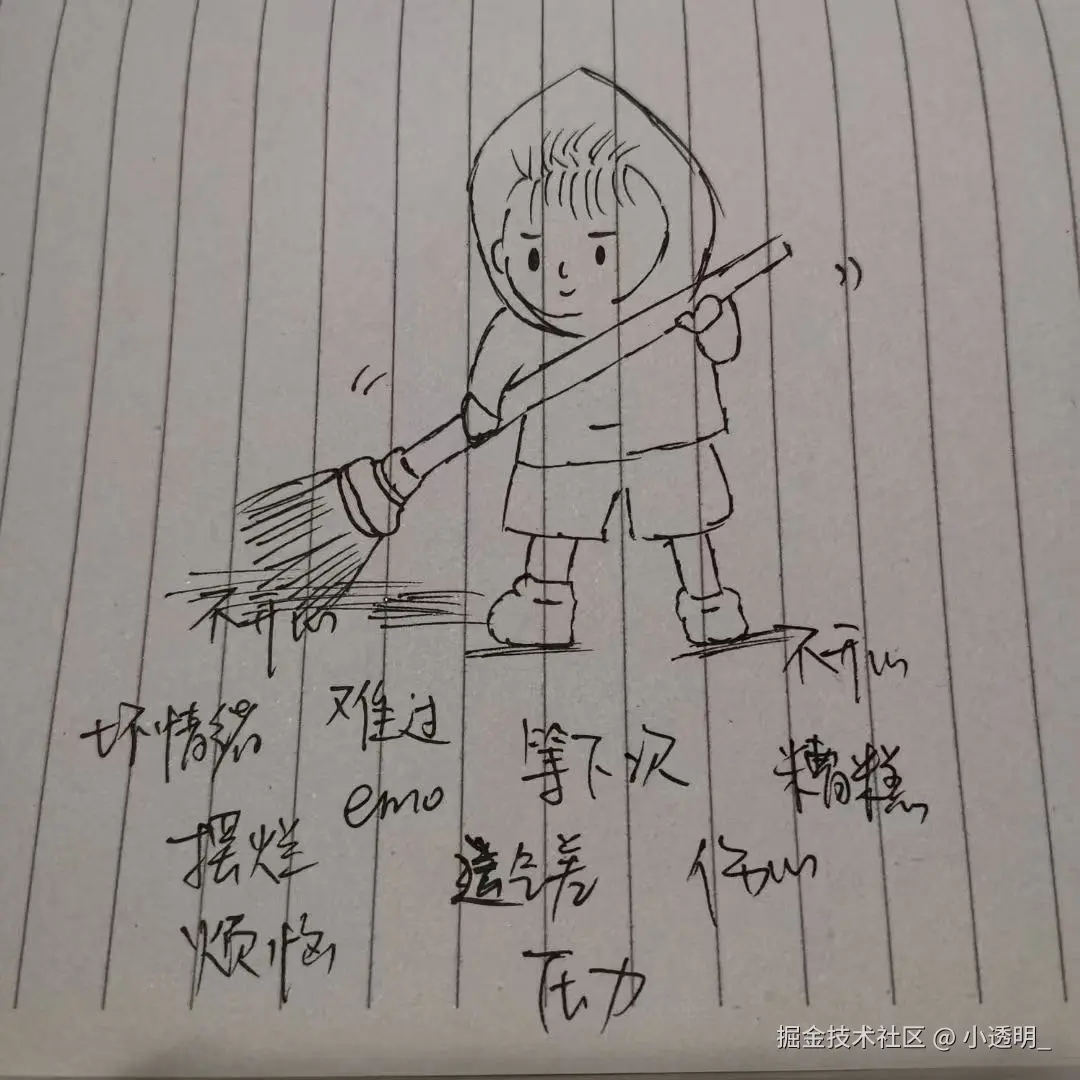 不开心
不开心
坏情绪
难过
等下次
糟糕
emo
摆烂
伤心
烦恼
压力
掘金技术社区 @ 小透明_